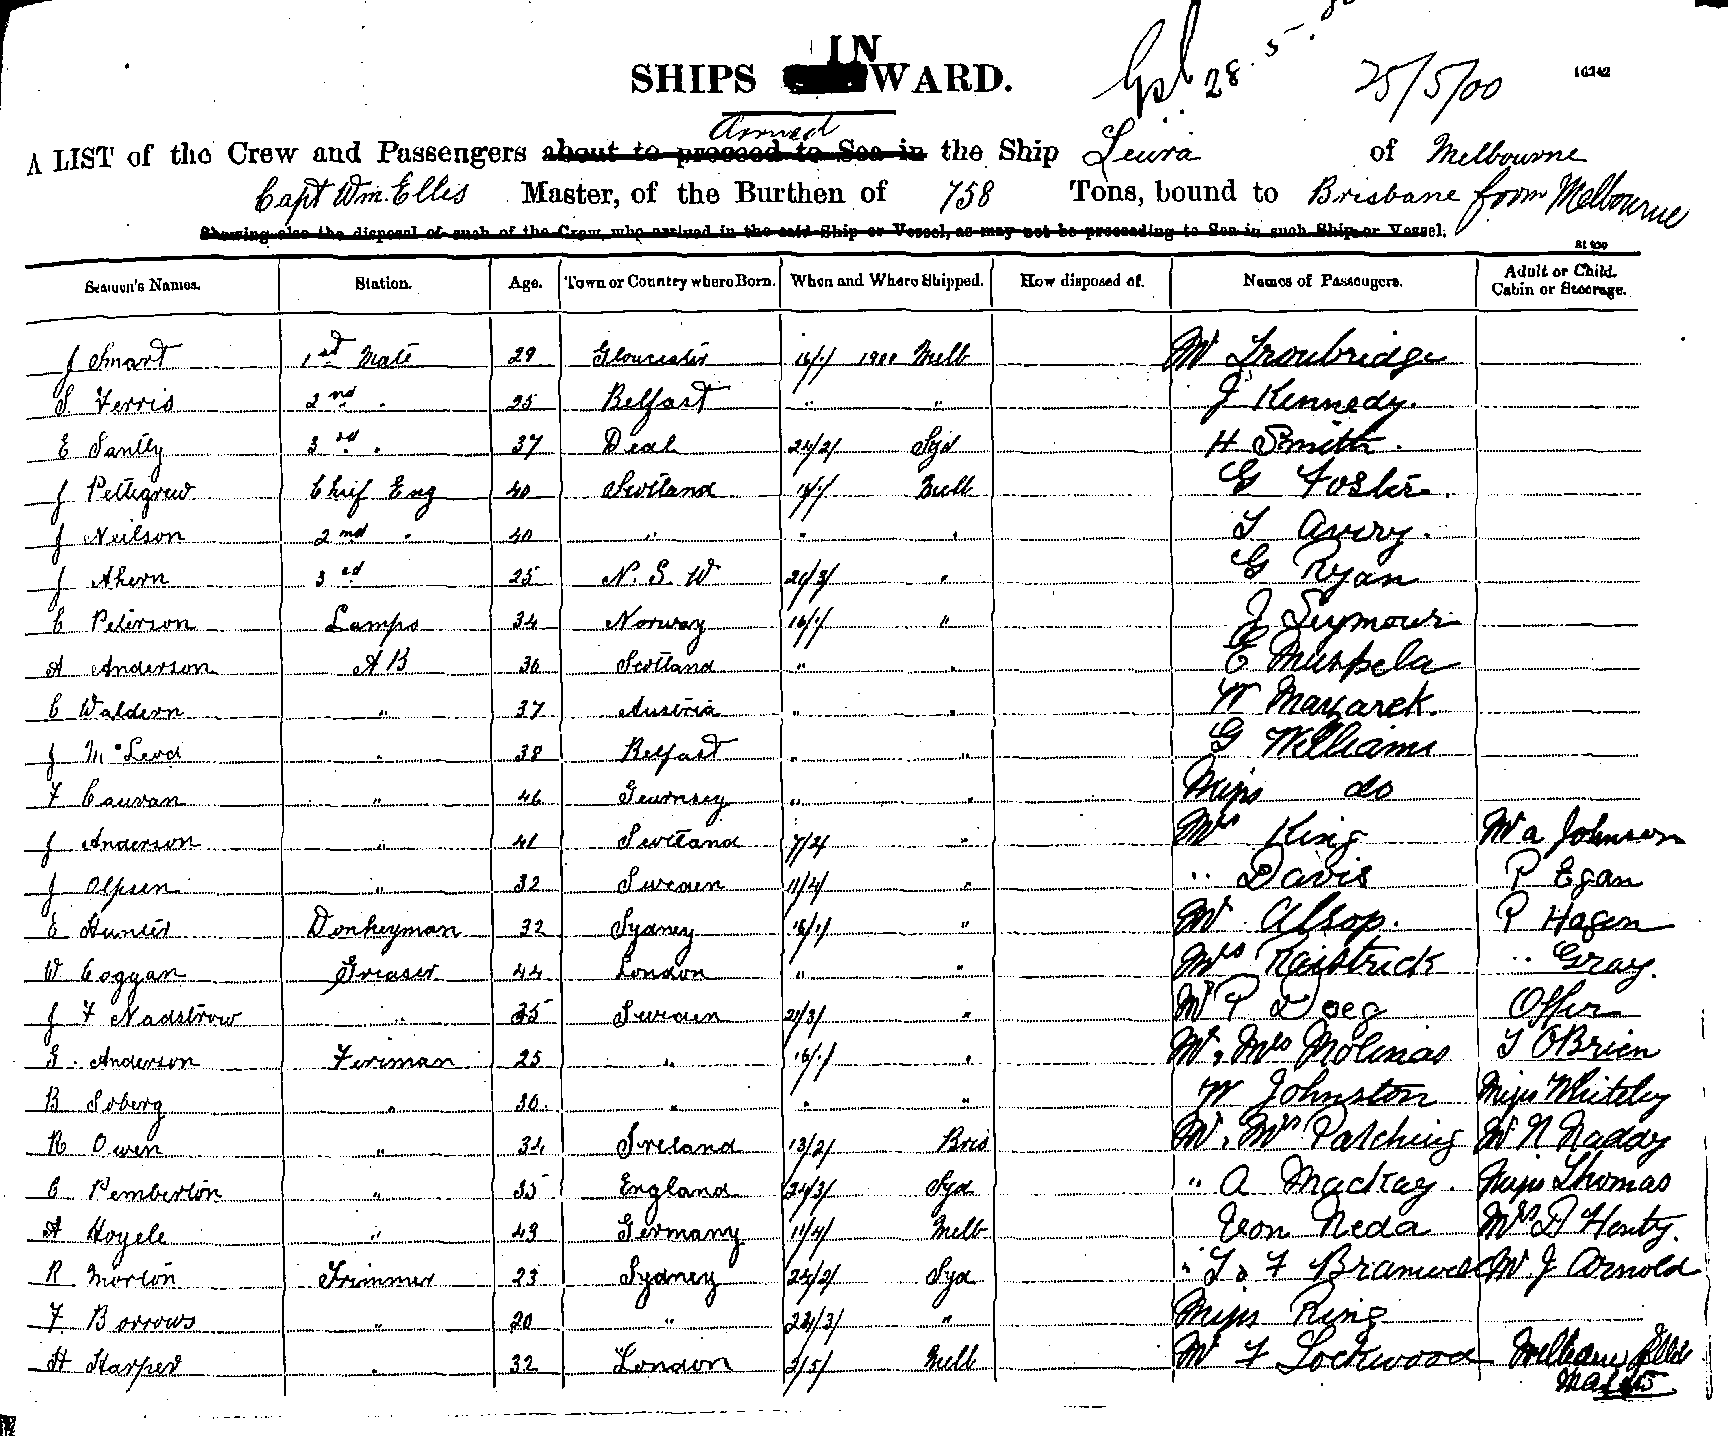 IN
SHIPS WARD. 28.5. 25/5/00 16242
Arrived
A LIST of the Crew and Passengers about to proceed to Sea in the Ship Leura of Melbourne
Capt Wm. Ellis Master, of the Burthen of 758 Tons, bound to Brisbane from Melbourne
Showing also the disposal of such of the Crew, who arrived in the said Ship or Vessel, as may not be proceeding to Sea in such Ship or Vessel.
Seamen's Names. Station. Age. Town or Country where Born. When and Where Shipped. How disposed of. Names of Passengers. Adult or Child. Cabin or Steerage.
J Smart 1st Mate 29 Gloucester 16/1 1900 Melb Mr Troubridge
S Ferris 2nd " 25 Belfast " " J Kennedy.
E Santly 3rd " 37 Deal 24/2/ Syd H Smith.
J Pettigrew Chief Eng 40 Scotland Melb G Foster.
J Neilson 2nd " 40 " " " T Avery.
J Ahern 3rd 25 N. S. W 21/3/ " G Ryan
C Peterson Lamps 34 Norway 16/1/ " J Seymour
A Anderson A B 36 Scotland " " E
C Waldern " 37 Austria " " W
J McLeod " 38 Belfast " " G Williams
F Cauvan " 46 Guernsey " " Miss do
J Anderson " 41 Scotland 7/4/ " Mrs King Mr A Johnson
J Olssen " 32 Sweden 11/4/ " " Davis P Egan
E Hunter Donkeyman 32 Sydney 16/1/ " Mr Alsop. P Hagen
W Coggan Greaser 44 London " " Mrs Raistrick " Gray.
J F Nadstrow " 35 Sweden 21/3/ " Mr P Doeg
G. Anderson Fireman 25 " 16/1/ " Mr, Mrs Molinas T OBrien
B Soberg " 30 " " " W Johnston Miss Whiteley
R Owen " 34 Ireland 13/2/ Bris Mr, Mrs Patching Mr N Naddy
C Pemberton " 35 England 24/3/ Syd " A Mackay. Miss Thomas
A Hoyele " 43 Germany 11/4/ Melb Von Neda Mrs D Henty.
R Morton Trimmer 23 Sydney 24/2/ Syd " T & F Bramwell Mr J Arnold
F Borrows " 20 " 24/3/ " Miss King
H Harper " 32 London 2/5/ Melb Mr F Lockwood William Ellis
Master